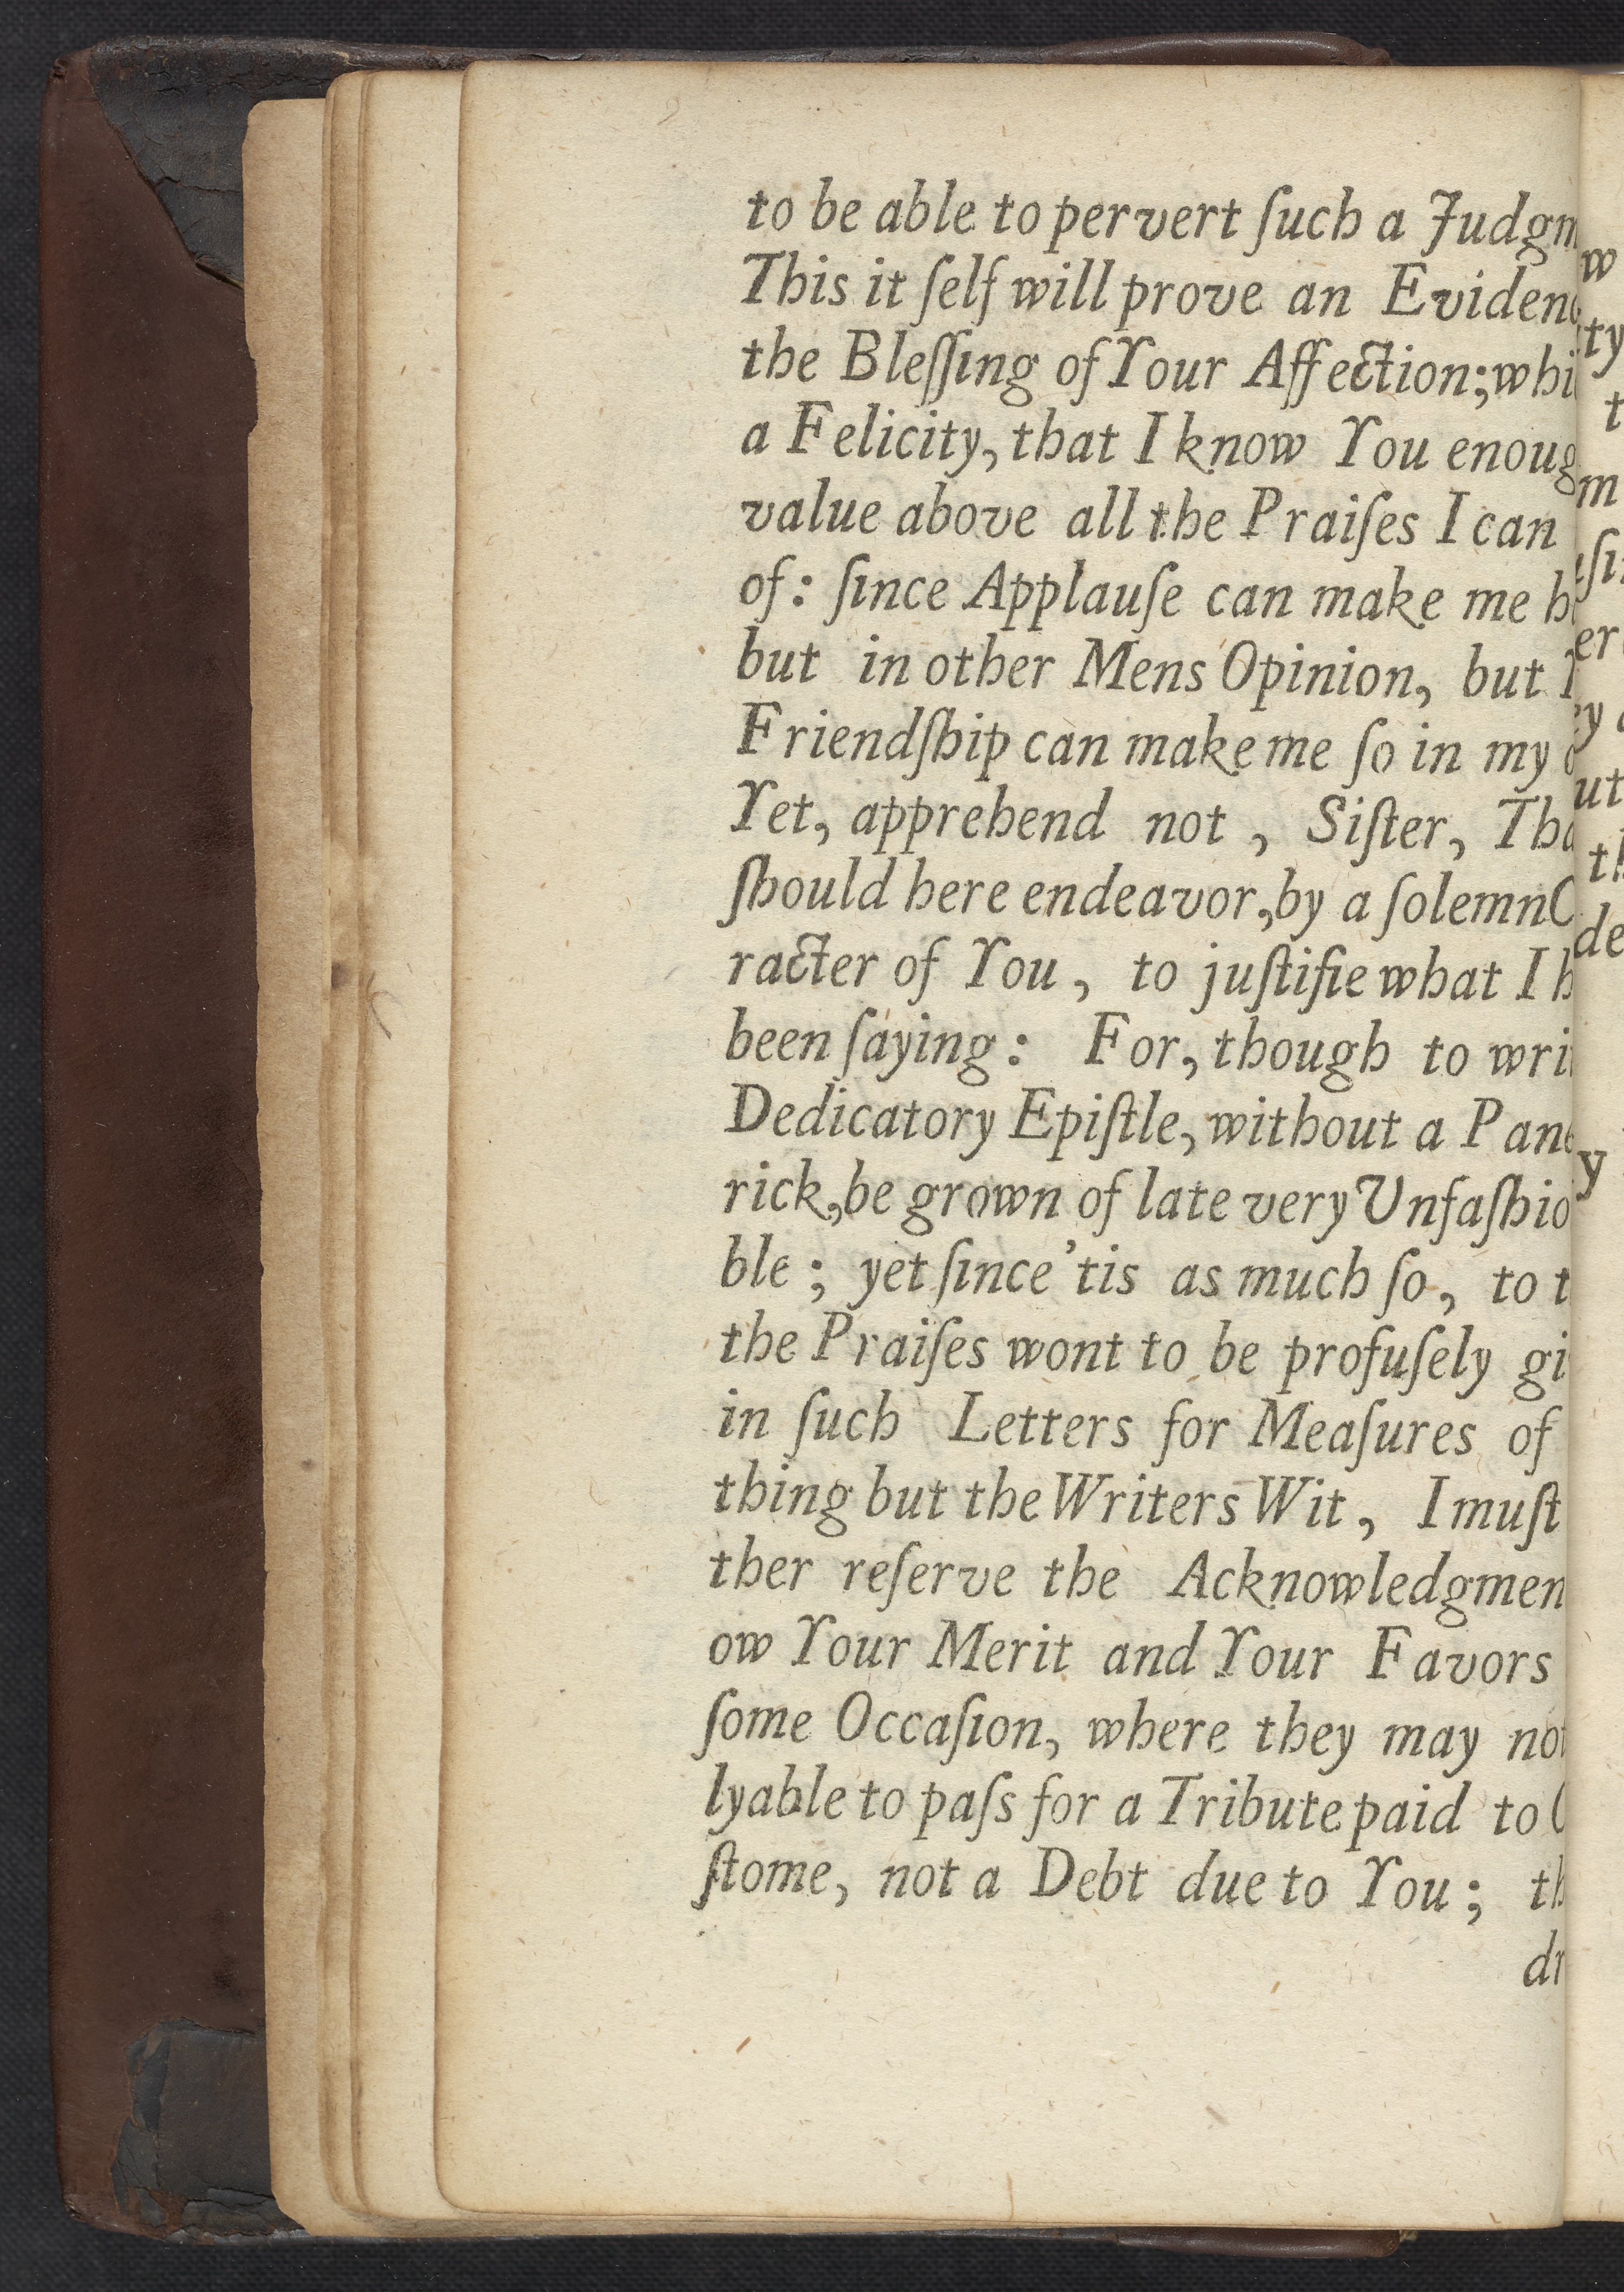 to be able to pervert ſuch a Judgm
This it ſelf will prove an Eviden
the Bleſſing of Your Affection; whi
a Felicity, that I know You enoug
value above all the Praiſes I can
of: ſince Applauſe can make me h
but in other Mens Opinion, but
Friendſhip can make me ſo in my
Yet, apprehend not, Siſter, Tha
ſhould here endeavor, by a ſolemn C
racter of You, to juſtifie what I h
been ſaying: For, though to wri
Dedicatory Epiſtle, without a Pane
rick, be grown of late very Unfaſhio
ble; yet ſince 'tis as much ſo, to t
the Praiſes wont to be profuſely gi
in ſuch Letters for Meaſures of
thing but the Writers Wit, I muſt
ther reſerve the Acknowledgmen
ow Your Merit and Your Favors
ſome Occaſion, where they may not
lyable to paſs for a Tribute paid to C
ſtome, not a Debt due to You; th
dr
w
ty
t
m
er
ut
th
de
y